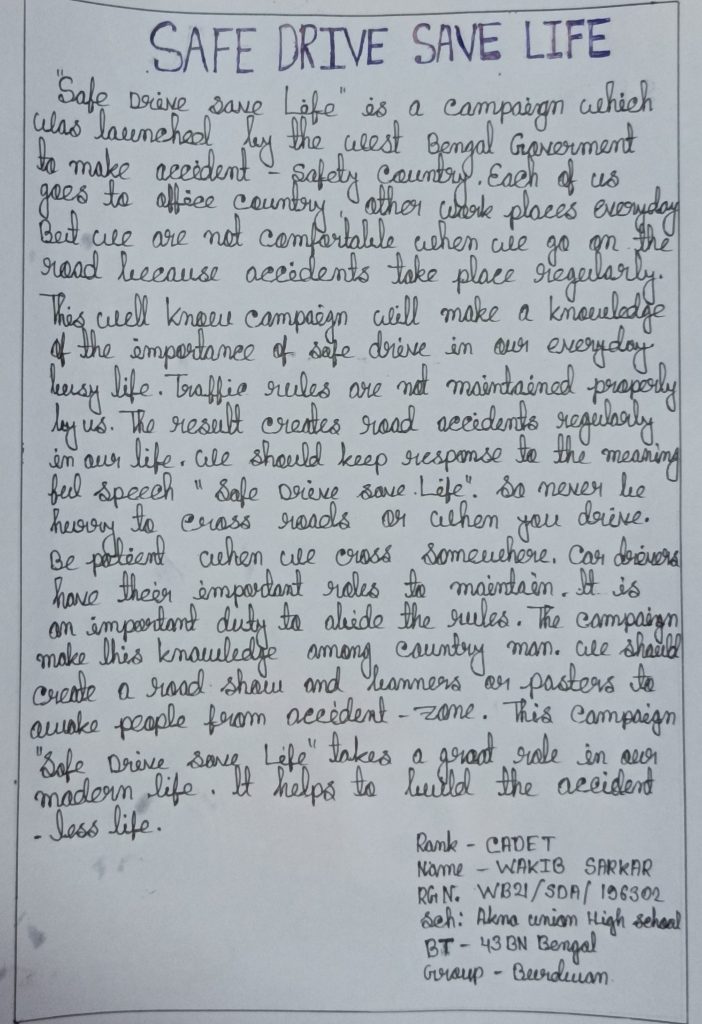 SAFE DRIVE SAVE LIFE
"Safe Drive save Life" is a campaign which
was launched by the west Bengal Goverment
to make accident - Safety Country. Each of us
goes to office country, other work places everyday
But we are not comfortable when we go on the
road because accidents take place regularly.
This well know campaign will make a knowledge
of the importance of safe drive in our everyday
busy life. Traffic rules are not maintained properly
by us. The result creates road accidents regularly
in our life. we should keep response to the meaning
ful speech " Safe Drive save Life". So never be
hurry to cross roads or when you drive.
Be patient when we cross somewhere. Car drivers
have their important roles to maintain. It is
an important duty to abide the rules. The campaign
make this knowledge among country man. we should
create a road show and banners or posters to
awake people from accident - zone. This campaign
"Safe Drive save Life" takes a great role in our
modern life. It helps to build the accident
- less life.
Rank - CADET
Name - WAKIB SARKAR
RGN. WB21/SDA/196302
Sch: Akna union High school
BT - 43 BN Bengal
Group - Burdwan.